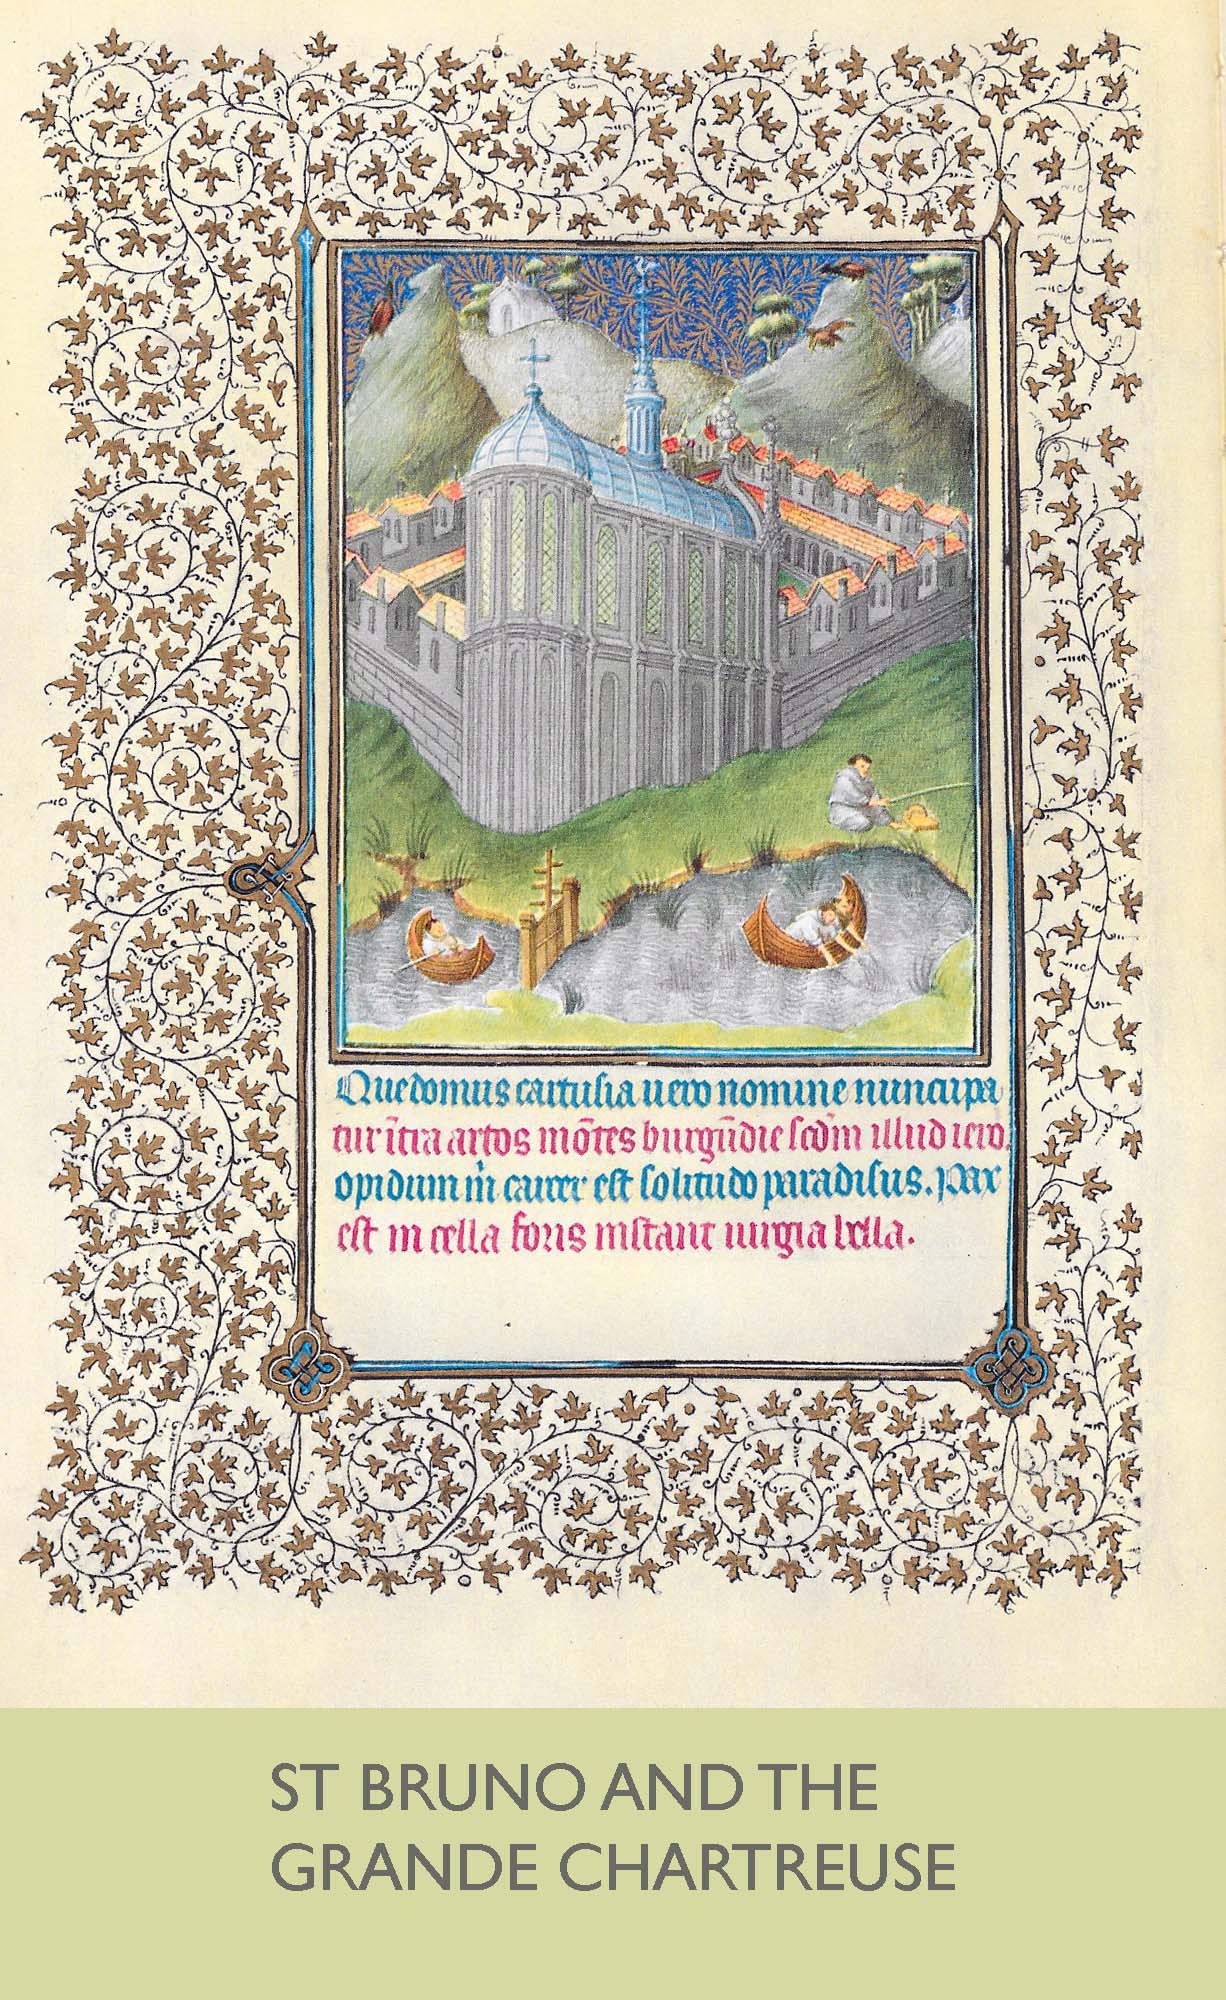 Quedomus cartusia uero nomine nuncupa
tur ītra artos mōtes burgūdie scd̄m illud iero.
opidum m̄ carcer est solitudo paradisus. Pax
est in cella foris instant iurgia bella.
ST BRUNO AND THE
GRANDE CHARTREUSE